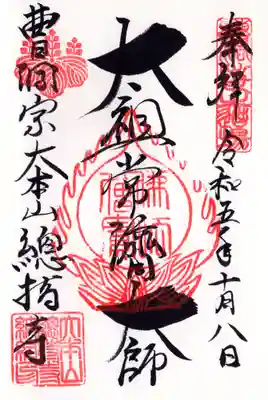 奉拝 令和五年十月八日
太祖常済大師
曹洞宗大本山總持寺